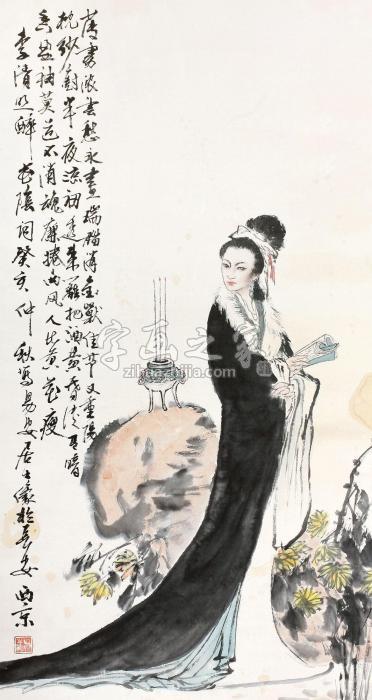 薄雾浓雲愁永晝瑞腦消金獸佳节又重陽
枕纱厨半夜凉初透东籬把酒黄昏后有暗
香盈袖莫道不消魂簾捲西风人比黄花瘦
李清照醉花陰詞癸亥仲秋写易安居士像於长安 西京
字画之家
zihuazhijia.com